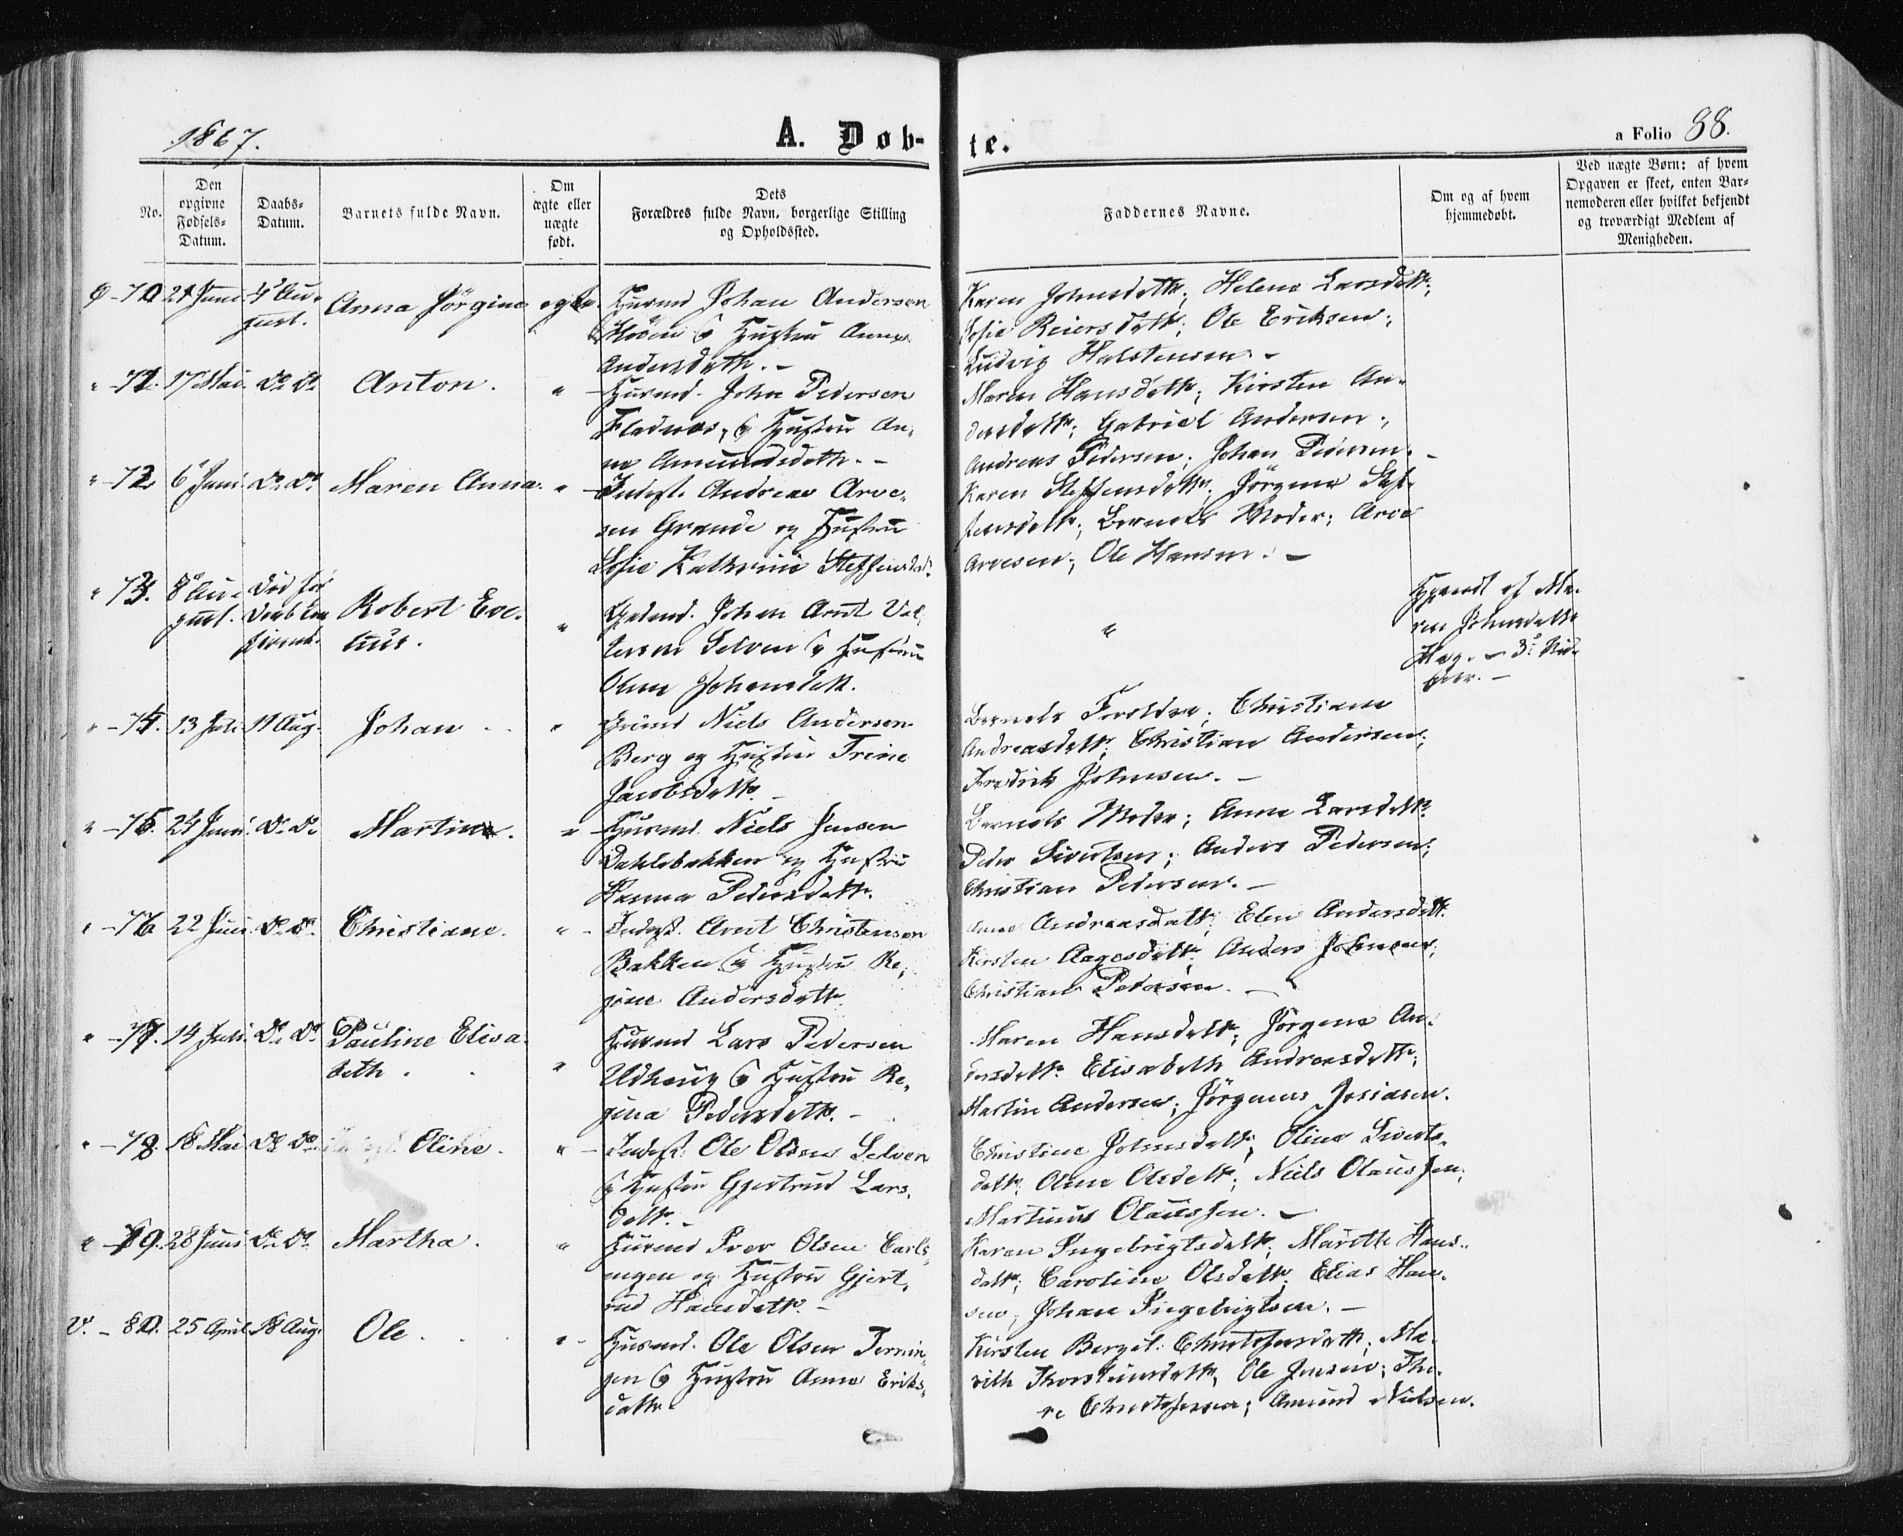 1867.
A. Døb-
te.
a Folio 88.
No.
Den
opgivne
Fødsels-
Datum.
Daabs-
Datum.
Barnets fulde Navn.
Om
ægte eller
uægte
født.
Dets
Forældres fulde Navn, borgerlige Stilling
og Opholdssted.
Faddernes Navne.
Om og af hvem
hjemmedøbt.
Ved uægte Børn: af hvem
Opgaven er skeet, enten Bar-
nemoderen eller hvilket bekjendt
og troværdigt Medlem af
Menigheden.
70 21 Juni 4 Au-
gust.
Anna Jörgine
ægte
Husmd Johan Andersen
Hustru Anne
Andersdatt. -
Karen Johnsdatt; Helene Larsdatt;
Sofie Reiersdatt; Ole Eriksen;
Ludvig Halstensen. -
" - 71. 17 Mai. Do Do
Anton.
"
Husmd. John Pedersen
Fladnæs, & Hustru An-
ne Amundsdatt. -
Maren Hansdatt; Kirsten An-
dersdatt; Gabriel Andersen;
Andreas Pedersen; Johan Pedersen. -
" - 72 6 Juni Do Do
Maren Anna.
"
Inderst. Andreas Arve-
sen Grande og Hustru
Sofie Kathrine Steffensdat.
Karen Steffensdatt; Jörgine Stef-
fensdatt; Barnets Moder; Arve
Arvesen; Ole Hansen. -
" 73. 8 Au-
gust.
Död før
Robert Eve-
lius.
"
Gaardmd. Johan Arnt Val-
Selven & Hustru
Oline Johansdatt.
"
Hjemdt af Ma-
ren Johnsdatt
" - 74. 13 Juli 11 Aug.
Johan
"
Husmd Niels Andersen
Berg og Hustru Trine
Jacobsdatt. -
Barnets Forældre; Christiane
Andreasdatt; Christian Andersen;
Fredrik Johnsen. -
" - 75. 24 Juni Do Do
Martin.
"
Husmd. Niels Jensen
Dahlsbakken og Hustru
Hanna Pedersdatt.
Barnets Moder; Anne Larsdatt.
Peder Sivertsen; Anders Pedersen;
Christian Pedersen. -
" - 76 22 Juni Do Do.
Christiane.
"
Inderst. Arnt Christensen
Bakken & Hustru Re-
gine Andersdatt.
Anne Andreasdatt; Elen Andersdatt.
Kirsten Aagesdatt. Anders Johnsen;
Christian Pedersen. -
" - 77. 14 Juli. Do Do
Pauline Elisa-
beth.
"
Husmd Lars Pedersen
Udhaug & Hustru Re-
gina Pedersdatt. -
Maren Hansdatt; Jörgine An-
dersdatt. Elisabeth Andreasdatt;
Martin Andersen; Jörginus Josiasen.
" - 78 18 Mai Do Do
Oline.
"
Inderst. Ole Olsen Selven
& Hustru Gjertrud Lars-
datt. -
Christine Johnsdatt; Oline Siverts-
datt; Oline Olsdatt; Niels Olaussen;
Martinus Olaussen. -
" - 79. 28 Juni Do Do.
Martha.
"
Husmd Iver Olsen Carls-
engen og Hustru Gjert-
rud Hansdatt. -
Karen Ingebrigtsdatt; Marethe Hans-
datt; Caroline Olsdatt; Elias Han-
sen; Johan Ingebrigtsen. -
V. - 80. 25 April 18 Aug.
Ole.
"
Husmd. Ole Olsen Ternin-
gen & Hustru Anne Eriks-
datt. -
Kirsten Berget Christofersdatt; Ma-
rith Thorsteinsdatt; Ole Jensen; Tho-
re Christofersen; Amund Nielsen.